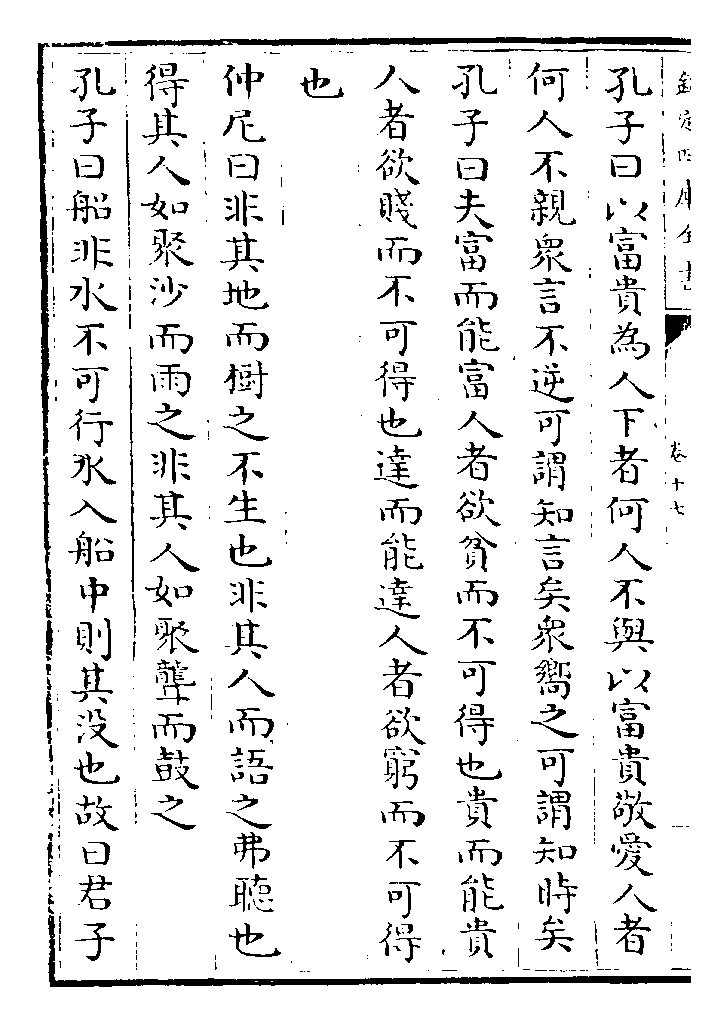 欽定四庫全書
卷十七
孔子曰以富貴為人下者何人不與以富貴敬愛人者
何人不親衆言不逆可謂知言矣衆嚮之可謂知時矣
孔子曰夫富而能富人者欲貧而不可得也貴而能貴
人者欲賤而不可得也達而能達人者欲窮而不可得
也
仲尼曰非其地而樹之不生也非其人而語之弗聽也
得其人如聚沙而雨之非其人如聚聾而鼓之
孔子曰船非水不可行水入船中則其没也故曰君子